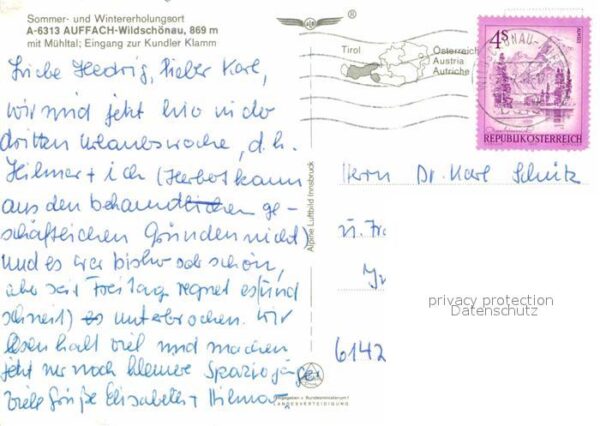 Sommer- und Wintererholungsort
A-6313 AUFFACH-Wildschönau, 869 m
mit Mühltal; Eingang zur Kundler Klamm
Liebe Hedwig, lieber Karl,
wir sind jetzt hier in der
dritten Urlaubswoche, d.h.
Hilmar + ich (Herbert kann
aus den behandlichen ge-
schäftlichen Gründen nicht)
und es war bisher sehr schön,
aber seit Freitag regnet es (und
schneit) es unterbrochen. Wir
lesen halt viel und machen
jetzt nur noch kleinere Spaziergänge.
Viele Grüße Elisabeth + Hilmar
Alpine Luftbild Innsbruck
®
Tirol
Österreich
Austria
Autriche
WILDSCHÖNAU-
4S
ALMSEE
REPUBLIK ÖSTERREICH
Herrn Dr. Karl Schütz
u. Fr.
privacy protection
Datenschutz
6142
LANDESVERTEIDIGUNG